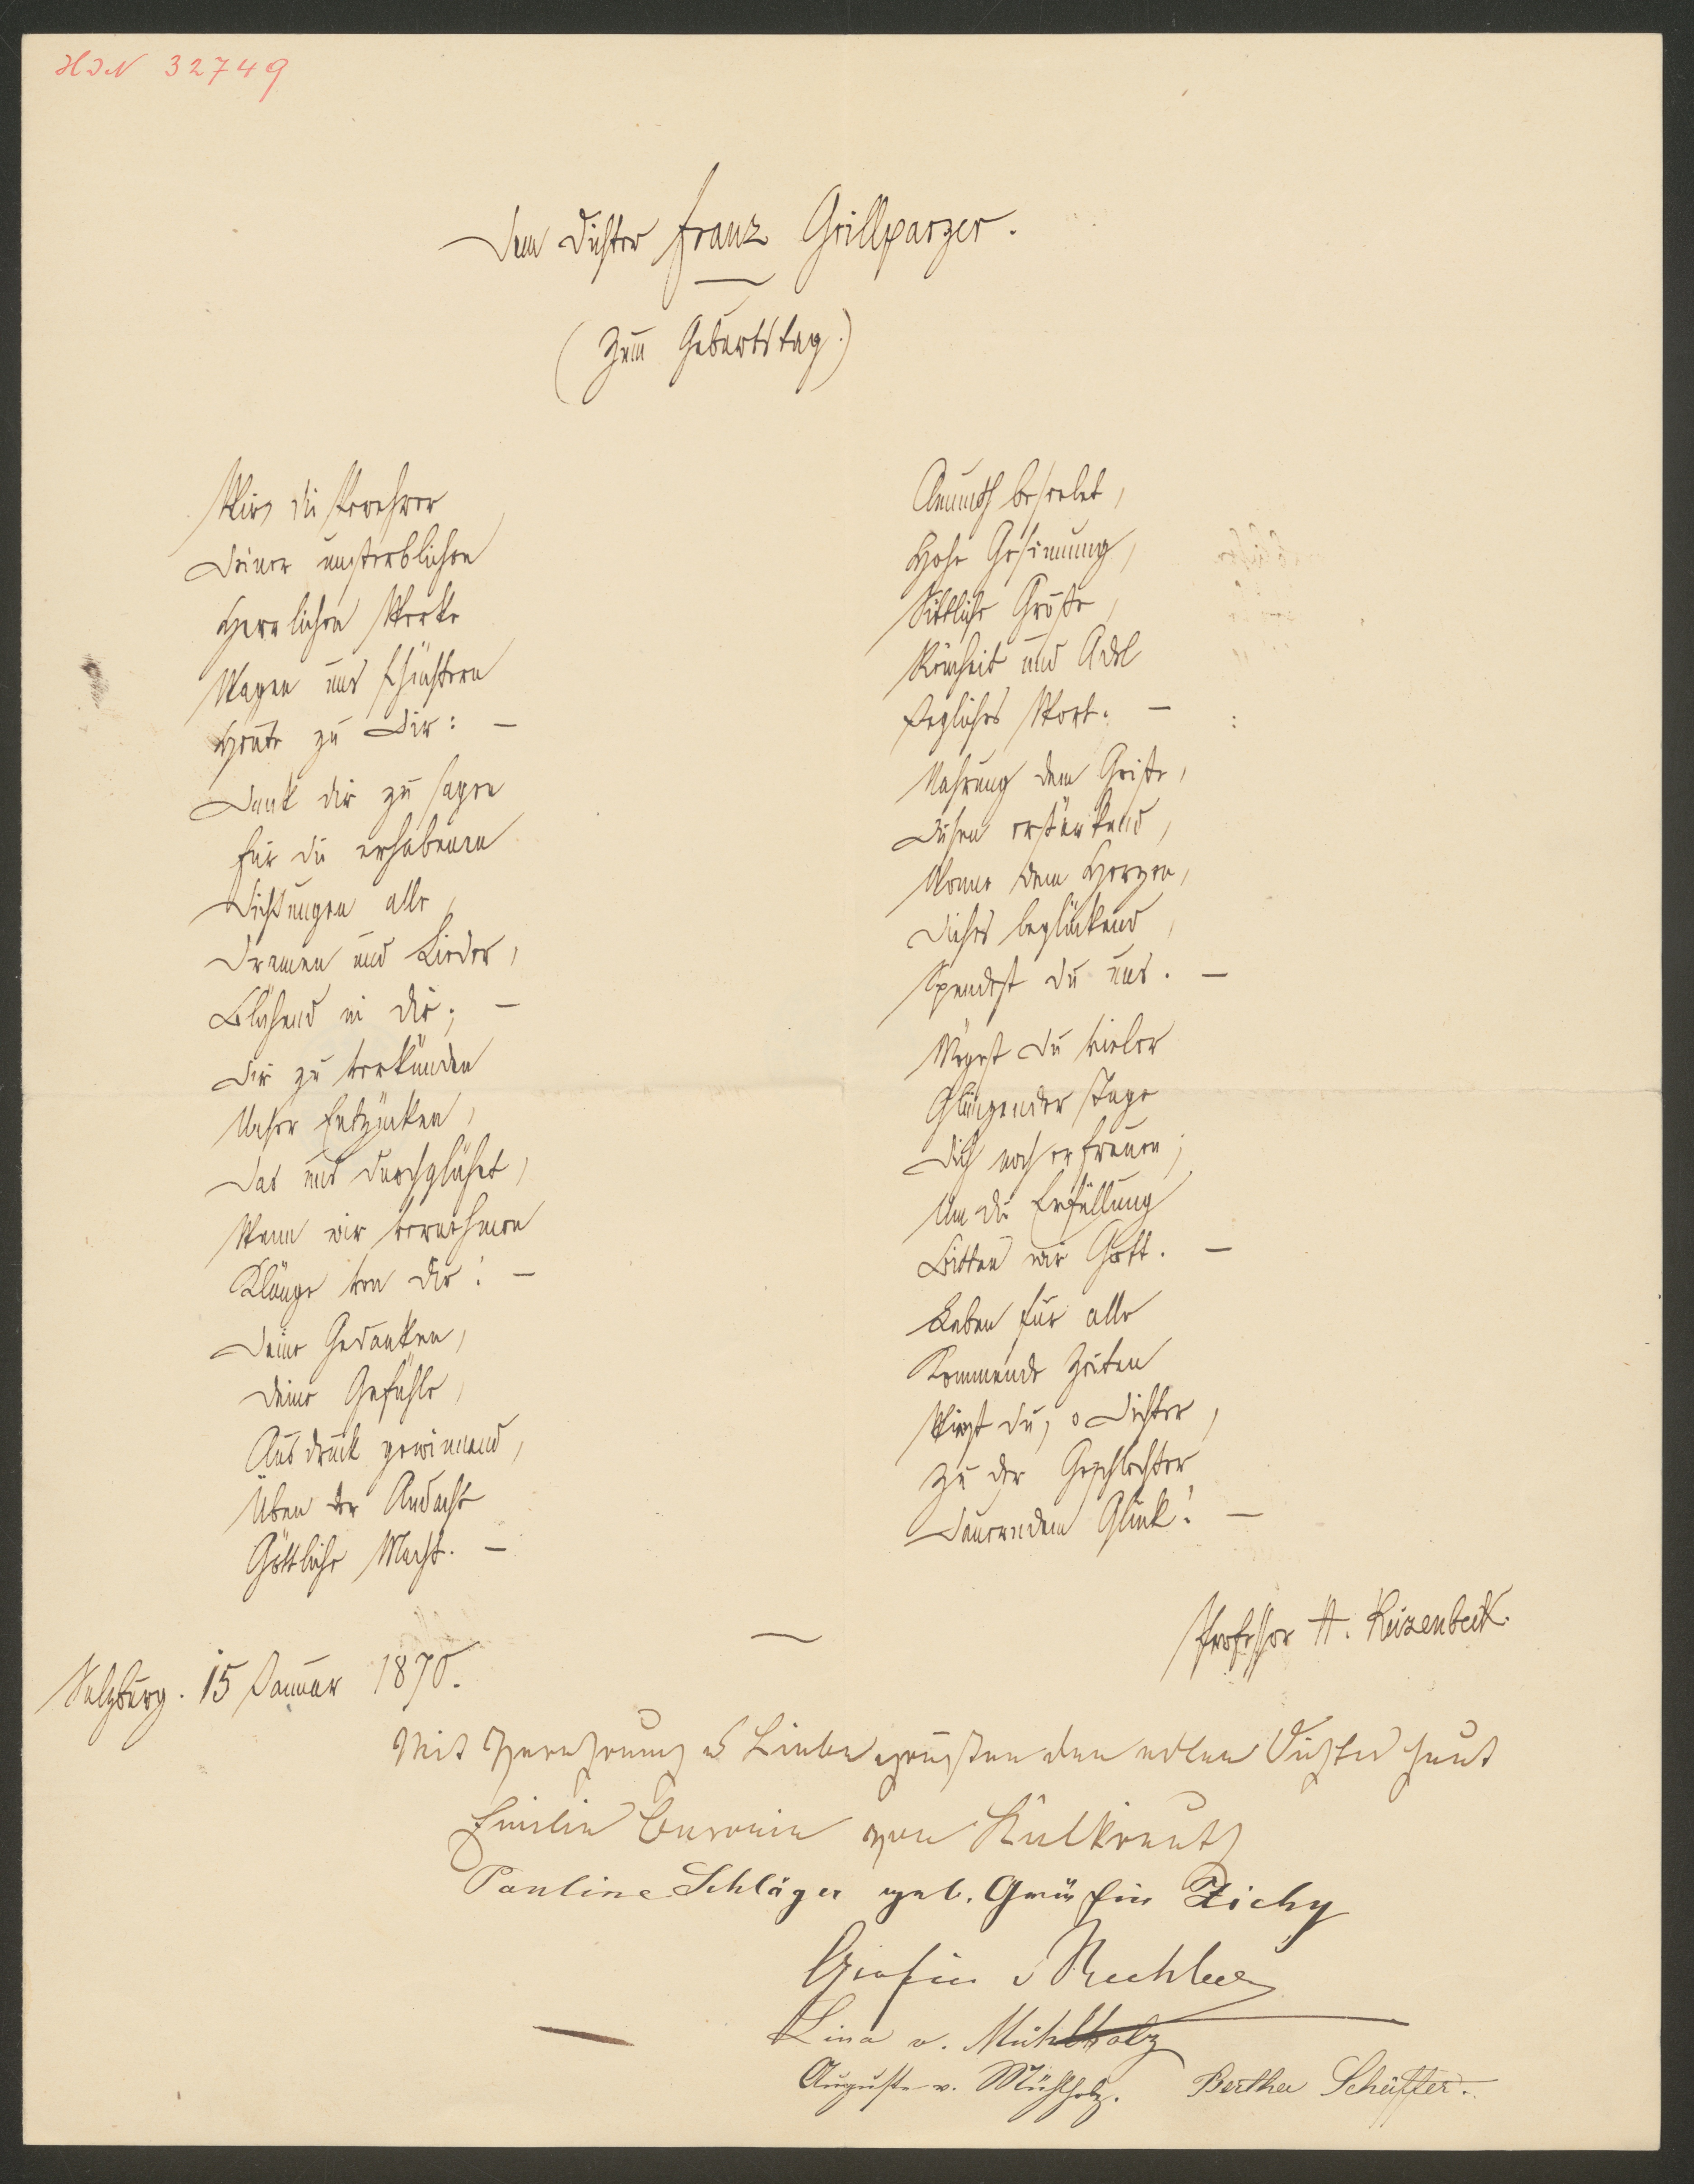 HIN 32749
Dem Dichter Franz Grillparzer.
(Zum Geburtstag.)
Wir, die Verehrer
Deiner unsterblichen
Herrlichen Werke
Wagen uns schüchtern
Heute zu Dir: —
Dank dir zu sagen
Für die erhabenen
Dichtungen alle,
Dramen und Lieder,
Blühend in dir; —
Dir zu verkünden
Unser Entzücken,
Das uns durchglühet,
Wenn wir vernehmen
Klänge von dir! —
Deine Gedanken,
Deine Gefühle,
Ausdruck gewinnend,
Üben der Andacht
Göttliche Macht. —
Anmuth beseelet,
Hohe Gesinnung,
Sittliche Größe,
Reinheit und Adel
Jegliches Wort. —
Nahrung dem Geiste,
Diesen erstärkend,
Wonne dem Herzen,
Dieses beglückend,
Spendest du uns. —
Mögest du vieler
Glänzender Tage
Dich noch erfreuen;
Um die Erfüllung
Bitten wir Gott. —
Leben für alle
Kommende Zeiten
Wirst du, o Dichter,
Zu der Geschlechter
Dauerndem Glück! —
Professor H. Reizenbeck.
Salzburg. 15 Januar 1870.
Mit Verehrung & Liebe grüßten den edlen Dichter heut
Emilie Baronin von
Pauline Schläger geb. Gräfin Zichy
Gräfin v Rechberg
Lina v. Mühlholz
Auguste v. Mühlholz. Bertha Schäffer.